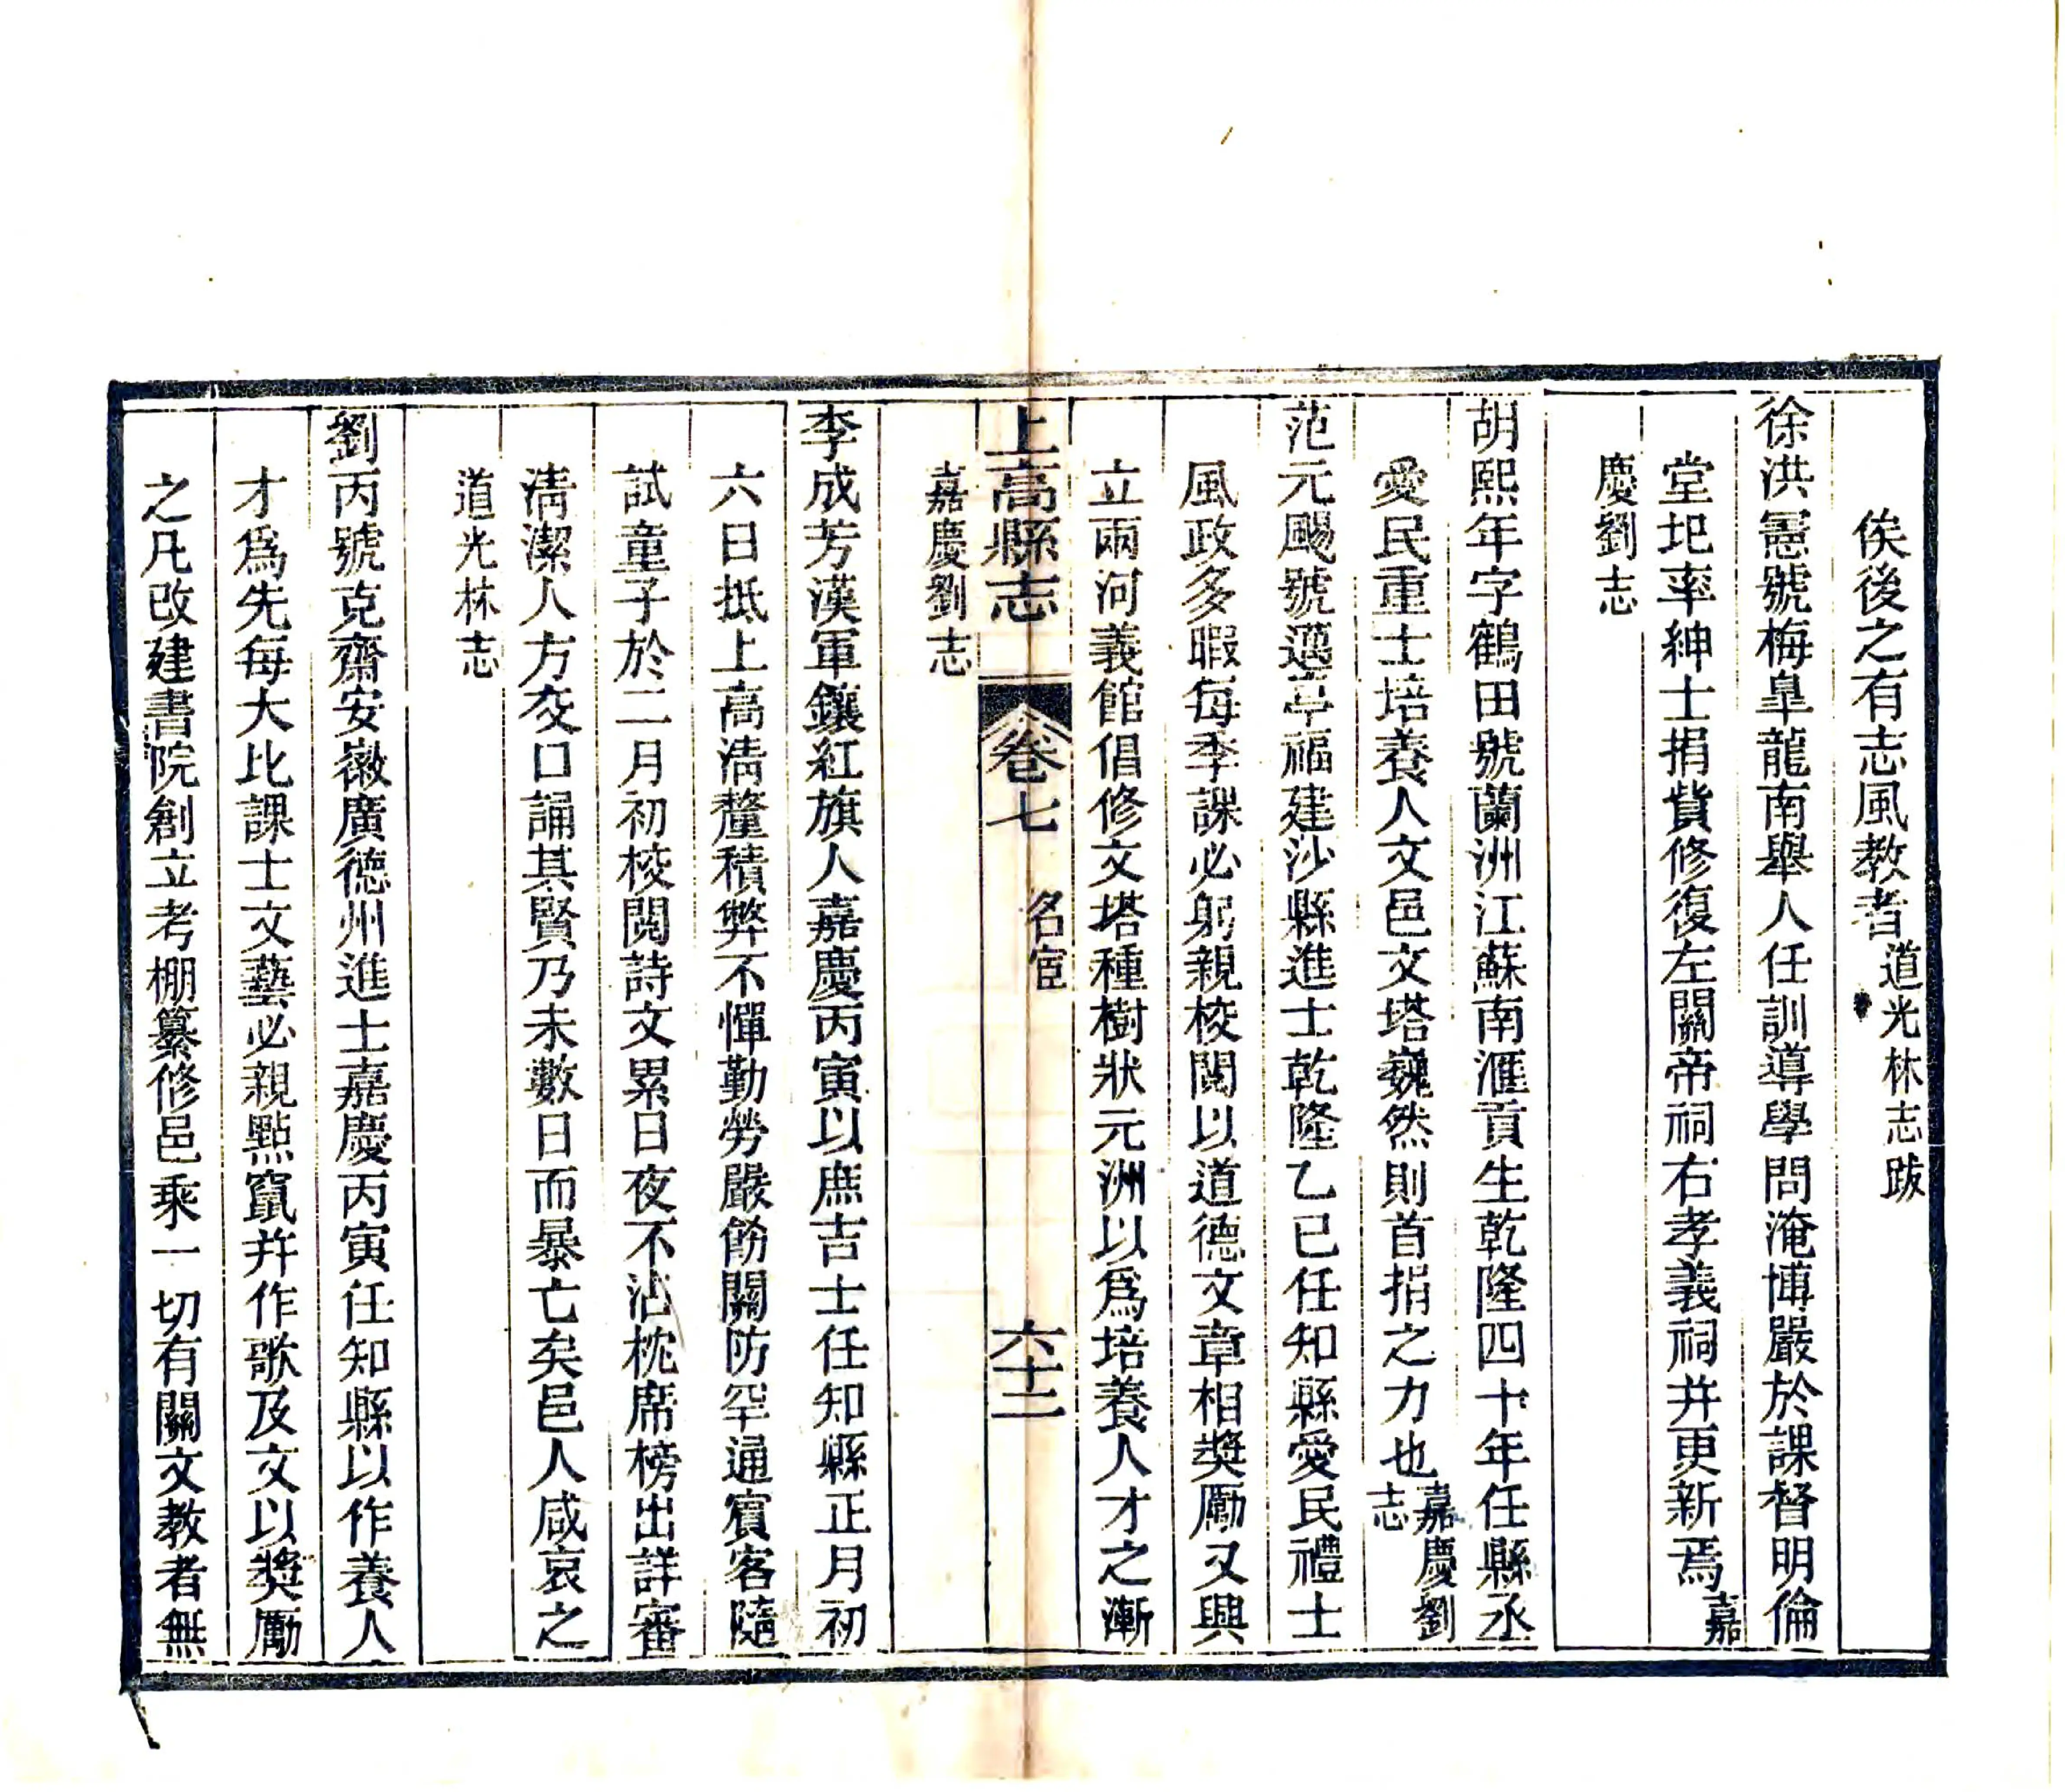 俟後之有志風教者道光林志跋
徐洪憲號梅臯龍南舉人任訓導學問淹博嚴於課督明倫
堂圮率紳士捐貲修復左關帝祠右孝義祠并更新焉嘉
慶劉志
胡熙年字鶴田號蘭洲江蘇南滙貢生乾隆四十年任縣丞
愛民重士培養人文邑文塔巍然則首捐之力也嘉慶劉志
范元颺號邁亭福建沙縣進士乾隆乙巳任知縣愛民禮士
風政多暇每季課必躬親校閱以道德文章相獎勵又興
立兩河義館倡修文塔種樹狀元洲以爲培養人才之漸
嘉慶劉志
上高縣志 卷七 名宦 六十二
李成芳漢軍鑲紅旗人嘉慶丙寅以庶吉士任知縣正月初
六日抵上高淸釐積弊不憚勤勞嚴飭關防罕通賓客隨
試童子於二月初校閱詩文累日夜不沾枕席榜出詳審
淸潔人方交口誦其賢乃未數日而暴亡矣邑人咸哀之
道光林志
劉丙號克齋安徽廣德州進士嘉慶丙寅任知縣以作養人
才爲先每大比課士文藝必親點竄并作歌及文以獎勵
之凡改建書院創立考棚纂修邑乘一切有關文教者無